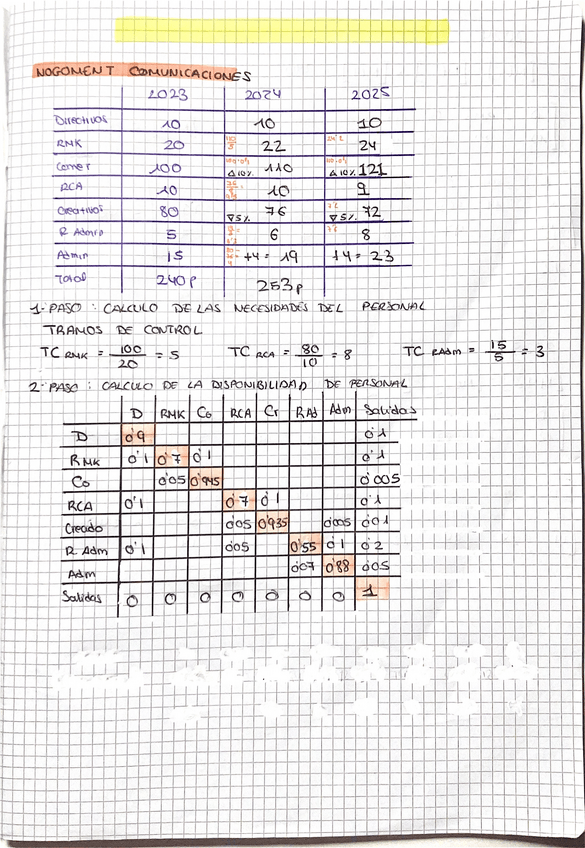 NOGOMENT COMUNICACIONES
2023 2024 2025
Directivos 10 10 10
RMK 20 22 24
Comer 100 Δ10% 110 Δ10% 121
RCA 10 10 9
Creativos 80 ∇5% 76 ∇5% 72
R Admin 5 6 8
Admin 15 +4 = 19 +4 = 23
Total 240 p 253 p
1-PASO: CALCULO DE LAS NECESIDADES DEL PERSONAL
TRAMOS DE CONTROL
TC RMK = 100/20 = 5 TC RCA = 80/10 = 8 TC RADM = 15/5 = 3
2-PASO: CALCULO DE LA DISPONIBILIDAD DE PERSONAL
D RMK Co RCA Cr RAd Adm Salidas
D 0'9 0'1
RMK 0'1 0'7 0'1 0'1
Co 0'05 0'945 0'005
RCA 0'1 0'7 0'1 0'1
Creado 0'05 0'935 0'005 0'01
R. Adm 0'1 0'05 0'55 0'1 0'2
Adm 0'07 0'88 0'05
Salidas 0 0 0 0 0 0 0 1